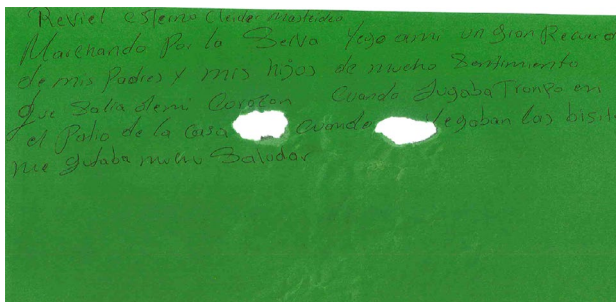 Reviel
Marchando Por la Selva Yego ami un gran Recuerdo
de mis Padres y mis hijos de mucho Sentimiento
que Salia demi Corazon Cuando Jugaba Trompo en
el Patio de la Casa Cuando llegaban las bisit
me gutaba mucho Saludar